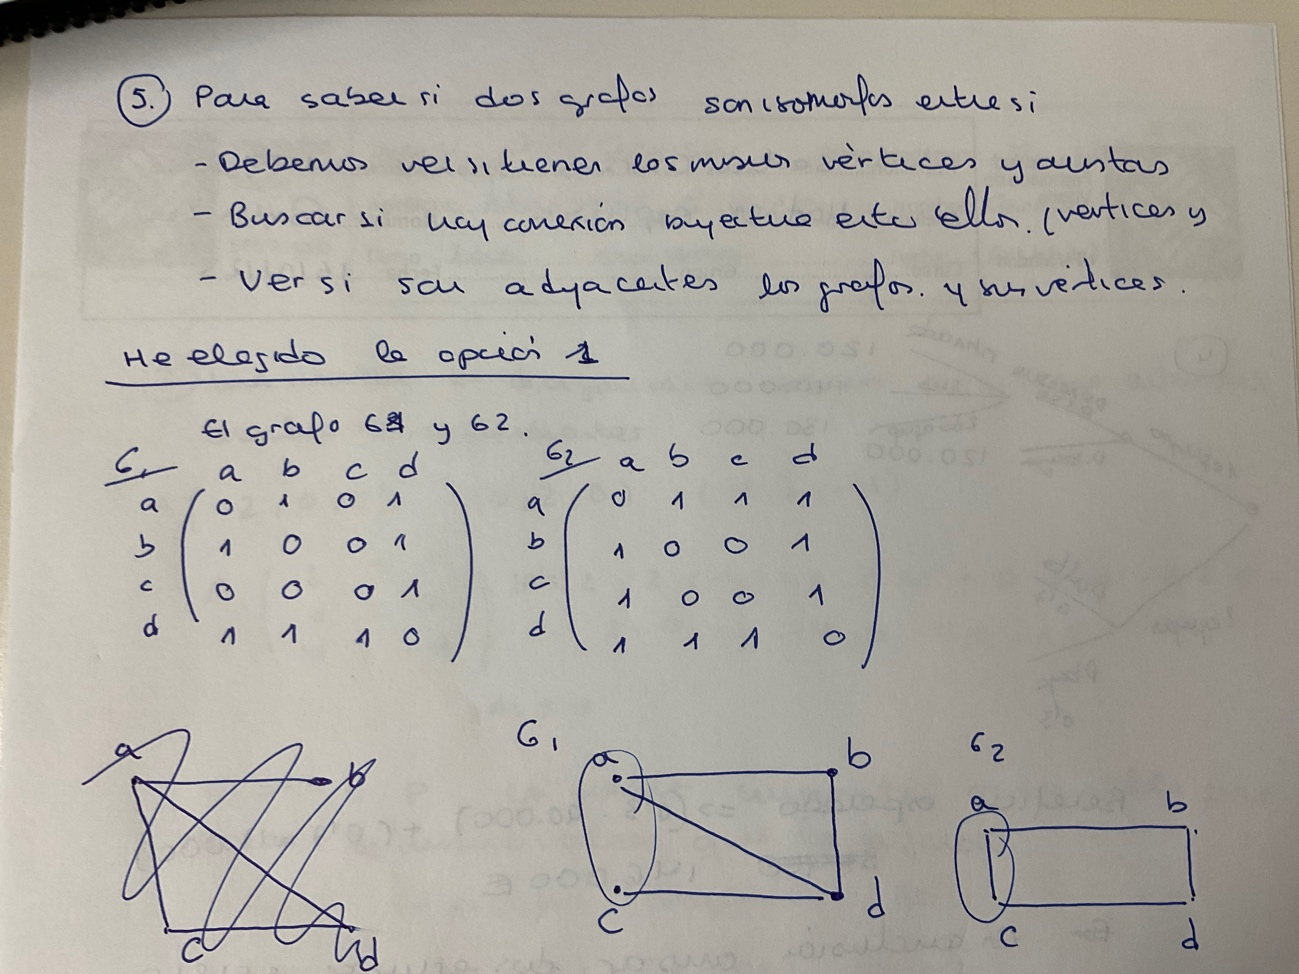 5. Para saber si dos grafos son isomorfos entre si
- Debemos ver si tienen los mismos vèrtices y aristas
- Buscar si hay conexión biyectiva entre ellos. (vertices y
- Ver si son adyacentes los grafos. y sus vértices.
He elegido la opció 1
El grafo G1 y G2.
G1 a b c d
a 0 1 0 1
b 1 0 0 1
c 0 0 0 1
d 1 1 1 0
G2 a b c d
a 0 1 1 1
b 1 0 0 1
c 1 0 0 1
d 1 1 1 0
a b
c d
G1
a b
c d
G2
a b
c d